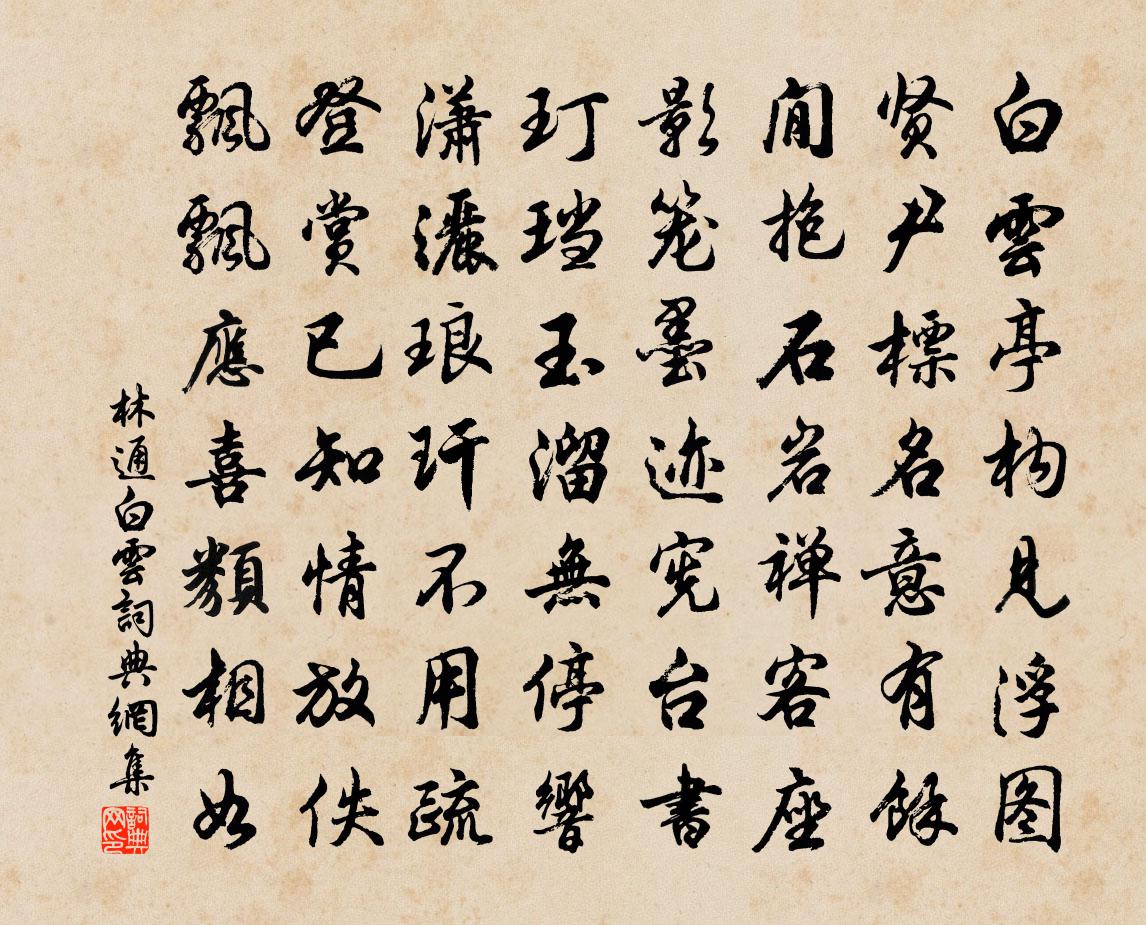 白雲亭构見浮图
贤尹標名意有餘
閒抱石岩禅客座
影笼墨迹宪台書
玎珰玉溜無停響
瀟灑琅玕不用疏
登赏已知情放佚
飄飄應喜類相如
林通白雲詞典網集
詞典网印